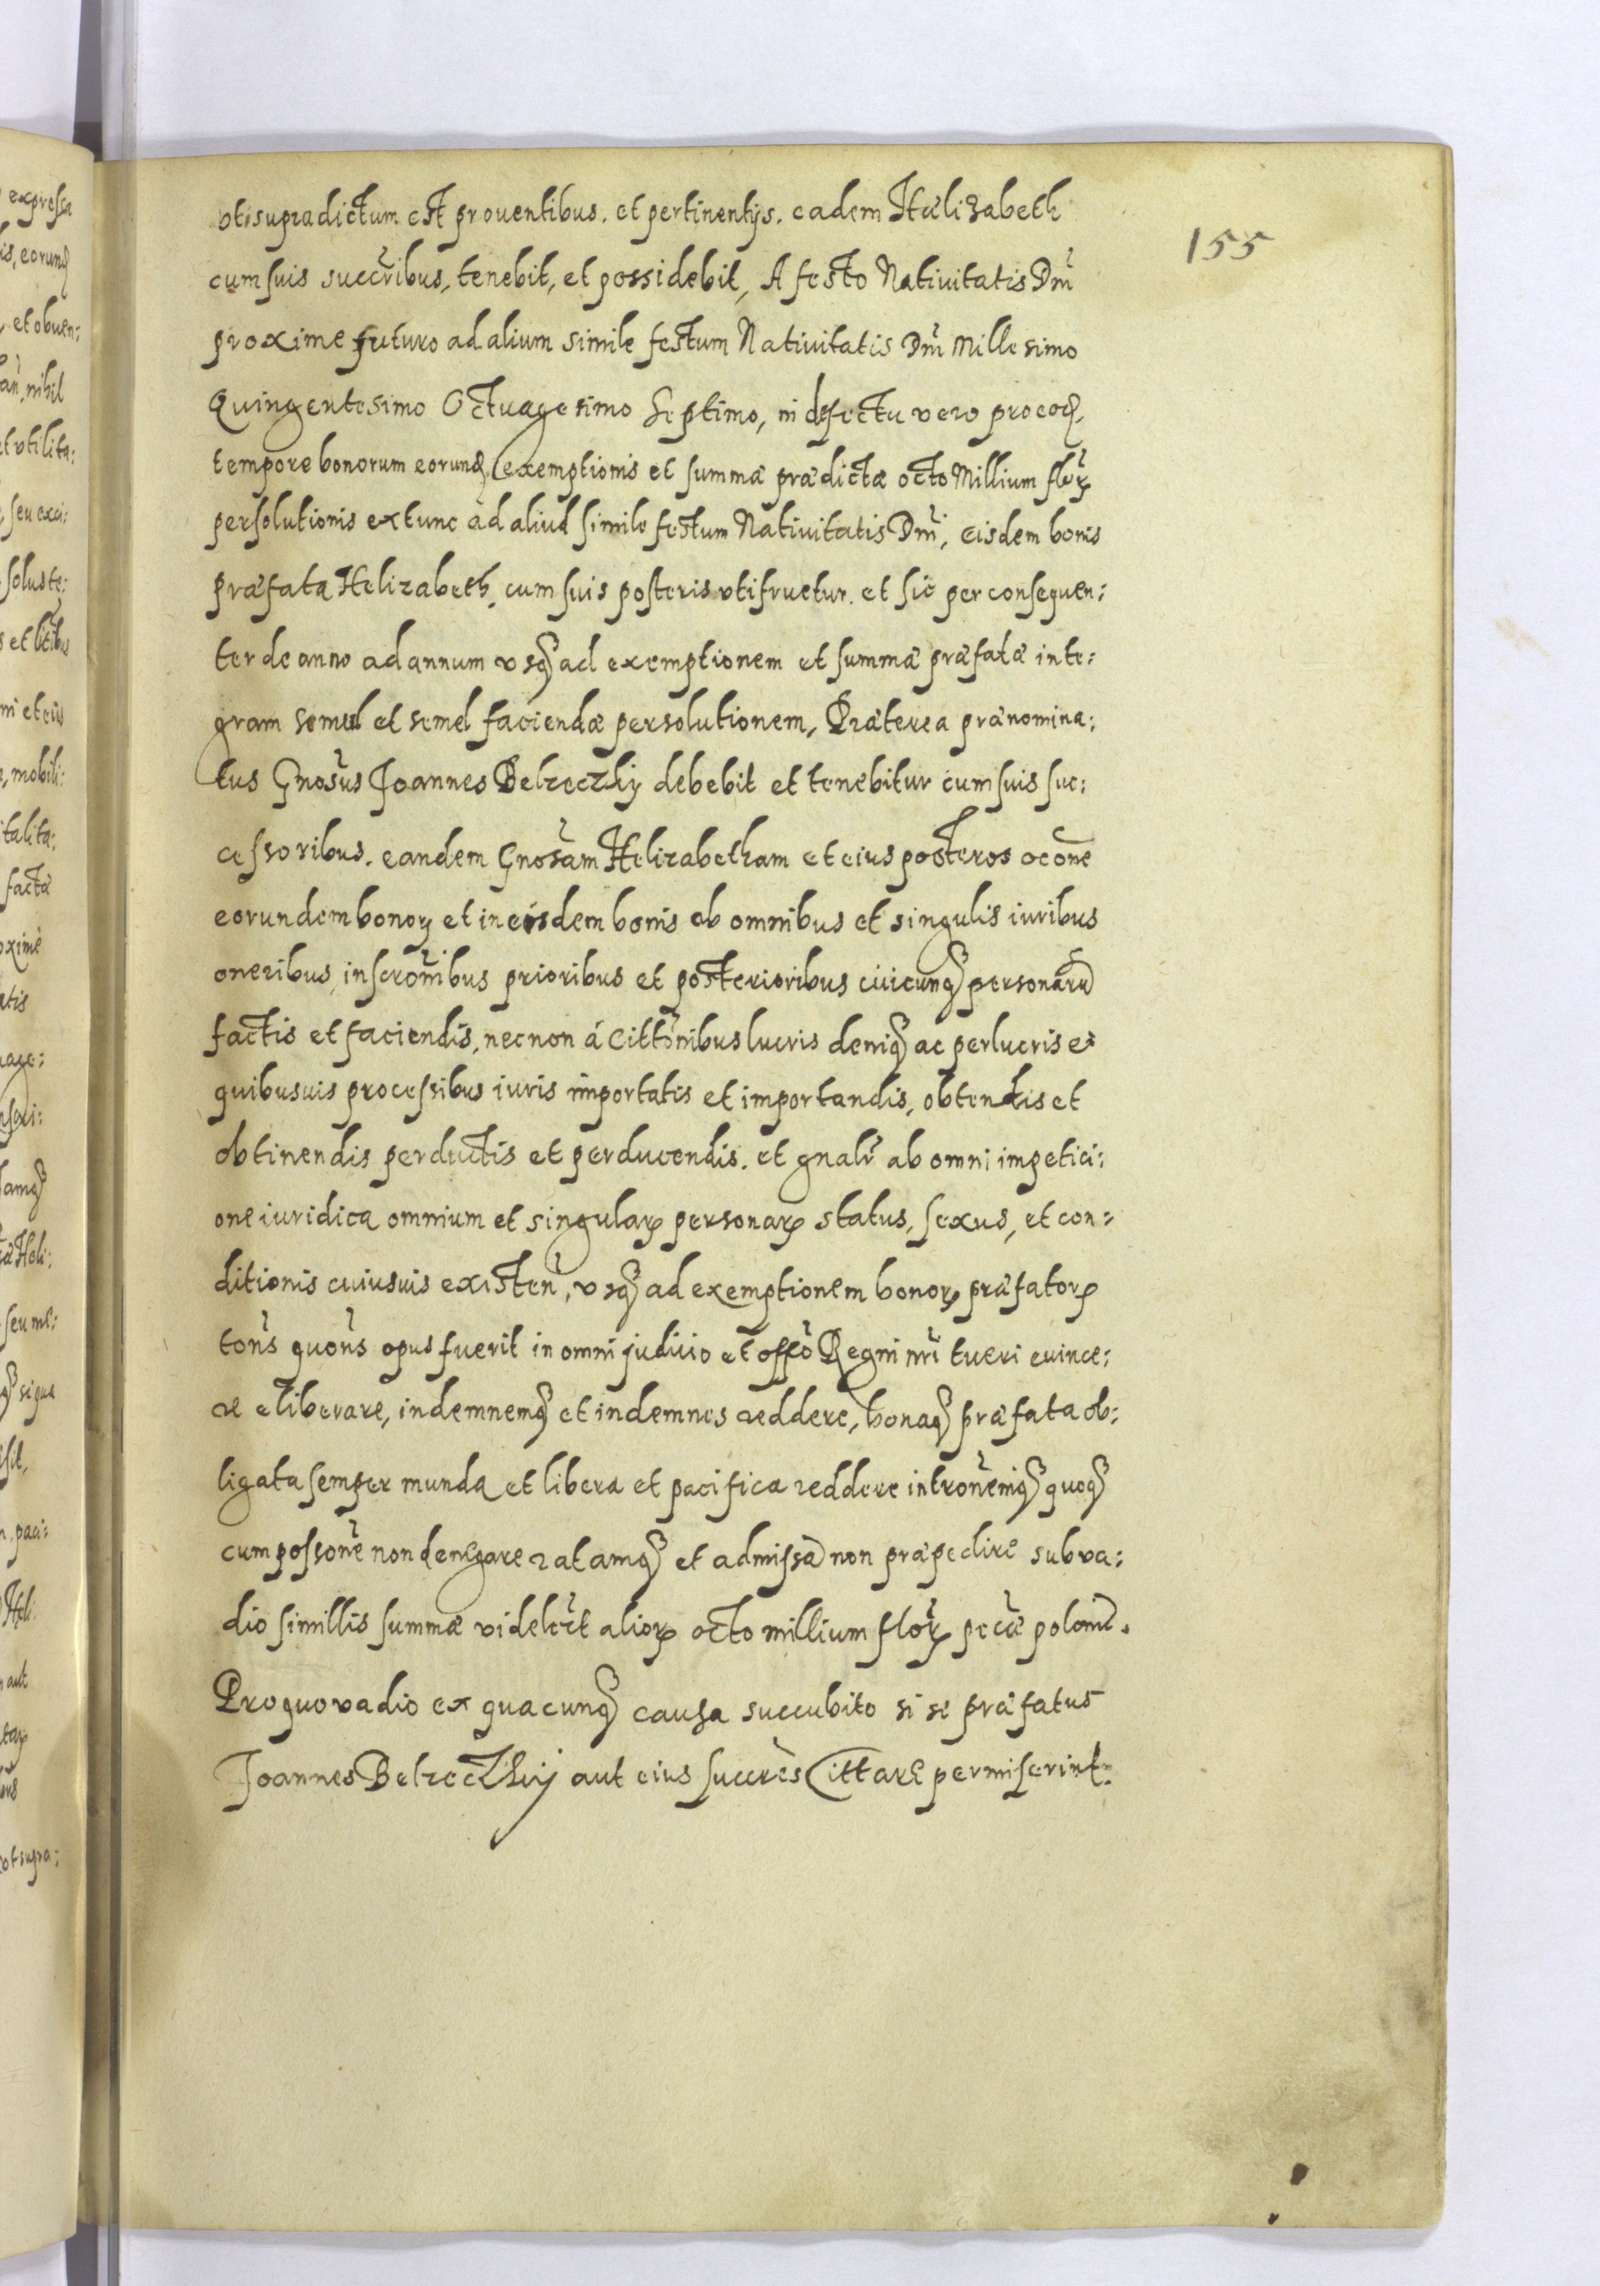 155
vtisupradictum est prouentibus. et pertinentijs. eadem Hælizabeth
cum suis succribus, tenebit, et possidebit, A festo Natiuitatis Dni
proxime futuro ad alium simile festum Natiuitatis Dni Millesimo
Quingentesimo Octuagesimo Septimo, in defectu vero
tempore bonorum eorundẽ exemptionis et summæ prædictæ octo Millium florꝝ
persolutionis extunc ad aliud simile festum Natiuitatis Dni, eisdem bonis
præfata Helizabeth. cum suis posteris vtifruetur. et sic per consequen:
ter de anno ad annum vsqꝫ ad exemptionem et summæ præfatæ inte:
gram semel et semel faciendæ persolutionem, Præterea prænomina:
tus Gnosus Joannes Belzeczkij debebit et tenebitur cum suis suc:
cessoribus. eandem Gnosam Helizabetham et eius posteros occone
eorundem bonorꝝ et in eisdem bonis ab omnibus et singulis iuribus
oneribus, inscronibus prioribus et posterioribus cuicunqꝫ personarũ
factis et faciendis, necnon á Cittonibus lucris deniqꝫ ac perlucris et
quibusuis processibus iuris importatis et importandis, obtendis et
obtinendis perductis et perducendis. et gnalr ab omni impetici:
one iuridica omnium et singularꝝ personarꝝ status, sexus, et con:
ditionis cuiusuis existeñ, vsqꝫ ad exemptionem bonorꝝ præfatorꝝ
tons quons opus fuerit in omni judicio et offo Regni nri tueri euince:
re et liberare, indemnemqꝫ et indemnes reddere, bonaqꝫ præfata ob:
ligata semper munda et libera et pacifica reddere intronemqꝫ quoqꝫ
cum possone non denegare ratamqꝫ et admissã non præpedire sub va:
dio simillis summæ videlcet aliorꝝ octo millium florꝝ pecuæ poloniꝫ.
Pro quo vadio ex quacunqꝫ causa succubito si se præfatus
Joannes Belzeczkij aut eius succres Cittare permiserint.